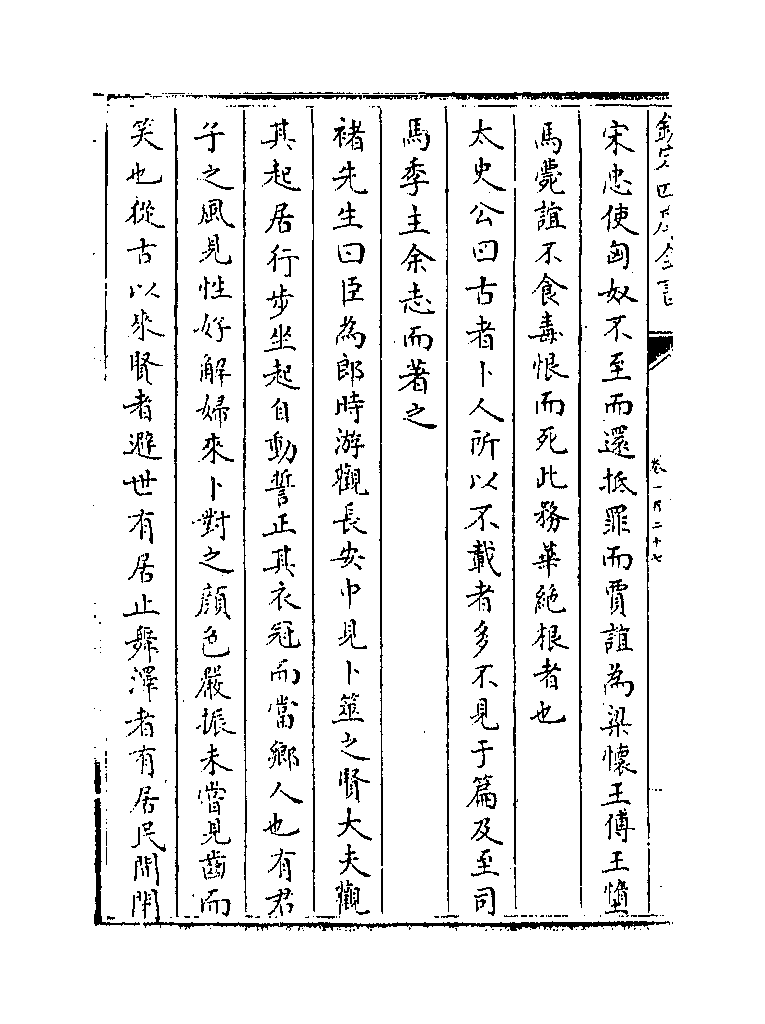 欽定四庫全書
卷一百二十七
宋忠使匈奴不至而還抵罪而賈誼為梁懷王傅王墮
馬薨誼不食毒恨而死此務華絶根者也
太史公曰古者卜人所以不載者多不見于篇及至司
馬季主余志而著之
褚先生曰臣為郎時游觀長安中見卜筮之賢大夫觀
其起居行步坐起自動誓正其衣冠而當鄉人也有君
子之風見性好解婦來卜對之顔色嚴振未嘗見齒而
笑也從古以來賢者避世有居止舞澤者有居民間閉